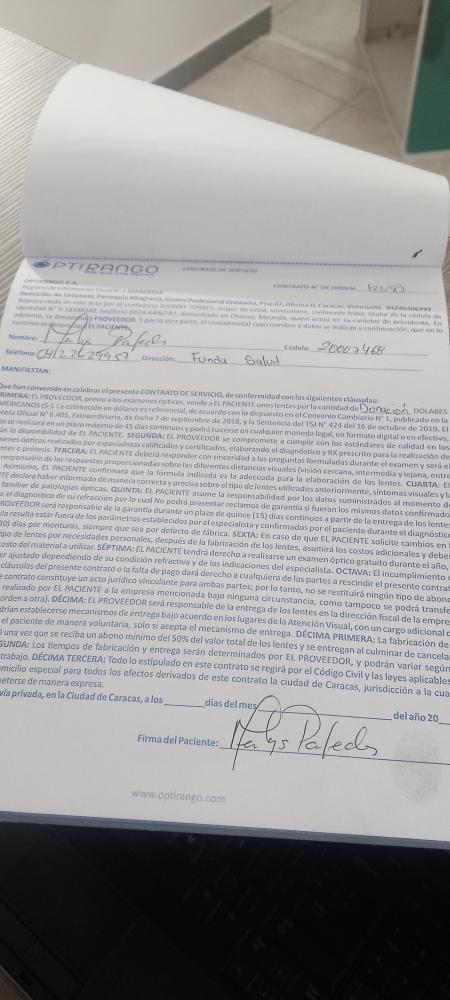 OPTIRANGO
CONTRATO DE SERVICIO
OPTIRANGO, C.A.
CONTRATO N° DE ORDEN
Domicilio: Av. Urdaneta, Parroquia Altagracia, Centro Profesional Urdaneta, Piso 07, Oficina Caracas, Venezuela. 04246406797
Representada en este acto por el ciudadano JHONNY TORRES, mayor de edad, venezolano, civilmente hábil, titular de la cédula de
identidad N° teléfono 0424 6406797, domiciliado en Chacao, Miranda, quien actúa en su carácter de presidente. En
adelante, se denominará EL PROVEEDOR. Y por la otra parte, el ciudadano(a) cuyo nombre y datos se indican a continuación, que en lo
sucesivo se denominará EL PACIENTE.
Nombre: Cédula: 20007468
Teléfono: 04122629957 Dirección: Funda Salud
MANIFIESTAN:
Que han convenido en celebrar el presente CONTRATO DE SERVICIO, de conformidad con las siguientes cláusulas:
RIMERA: EL PROVEEDOR, previo a los exámenes ópticos, vende a EL PACIENTE unos lentes por la cantidad de Donación DOLARES
MERICANOS ($-). La estimación en dólares es referencial, de acuerdo con lo dispuesto en el Convenio Cambiario N° 1, publicado en la
ceta Oficial N° 6.405, Extraordinaria, de fecha 7 de septiembre de 2018, y la Sentencia del TSJ N° 424 del 16 de octubre de 2019. El
o se realizará en un plazo máximo de 45 días continuos y podrá hacerse en cualquier moneda legal, en formato digital o en efectivo,
ún la disponibilidad de EL PACIENTE. SEGUNDA: EL PROVEEDOR se compromete a cumplir con los estándares de calidad en los
menes ópticos realizados por especialistas calificados y certificados, elaborando el diagnóstico y RX prescrito para la realización de
ntes o prótesis. TERCERA: EL PACIENTE deberá responder con sinceridad a las preguntas formuladas durante el examen y será el
responsable de las respuestas proporcionadas sobre las diferentes distancias visuales (visión cercana, intermedia y lejana, entre
Asimismo, EL PACIENTE confirmará que la fórmula indicada es la adecuada para la elaboración de los lentes. CUARTA: EL
TE declara haber informado de manera correcta y precisa sobre el tipo de lentes utilizados anteriormente, síntomas visuales y la
familiar de patologías ópticas. QUINTA: EL PACIENTE asume la responsabilidad por los datos suministrados al momento de
e el diagnóstico de su refracción por lo cual No podrá presentar reclamos de garantía si fueron los mismos datos confirmados
ROVEEDOR será responsable de la garantía durante un plazo de quince (15) días continuos a partir de la entrega de los lentes
la resulta estar fuera de los parámetros establecidos por el especialista y confirmados por el paciente durante el diagnóstico
30) días por monturas, siempre que sea por defecto de fábrica. SEXTA: En caso de que EL PACIENTE solicite cambios en
ipo de lentes por necesidades personales, después de la fabricación de los lentes, asumirá los costos adicionales y deberá
costo del material a utilizar. SÉPTIMA: EL PACIENTE tendrá derecho a realizarse un examen óptico gratuito durante el año,
er ajustado dependiendo de su condición refractiva y de las indicaciones del especialista. OCTAVA: El incumplimiento
cláusulas del presente contrato o la falta de pago dará derecho a cualquiera de las partes a rescindir el presente contrat
e contrato constituye un acto jurídico vinculante para ambas partes; por lo tanto, no se restituirá ningún tipo de abono
realizado por EL PACIENTE a la empresa mencionada bajo ninguna circunstancia, como tampoco se podrá transfe
orden a otra). DÉCIMA: EL PROVEEDOR será responsable de la entrega de los lentes en la dirección fiscal de la empre
drían establecerse mecanismos de entrega bajo acuerdo en los lugares de la Atención Visual, con un cargo adicional
el paciente de manera voluntaria, solo si acepta el mecanismo de entrega. DÉCIMA PRIMERA: La fabricación de
á una vez que se reciba un abono mínimo del 50% del valor total de los lentes y se entregan al culminar de cancela
GUNDA: Los tiempos de fabricación y entrega serán determinados por EL PROVEEDOR, y podrán variar según
trabajo. DÉCIMA TERCERA: Todo lo estipulado en este contrato se regirá por el Código Civil y las leyes aplicables
micilio especial para todos los efectos derivados de este contrato la ciudad de Caracas, jurisdicción a la cua
eterse de manera expresa.
vía privada, en la Ciudad de Caracas, a los días del mes del año 20
Firma del Paciente:
www.optirango.com